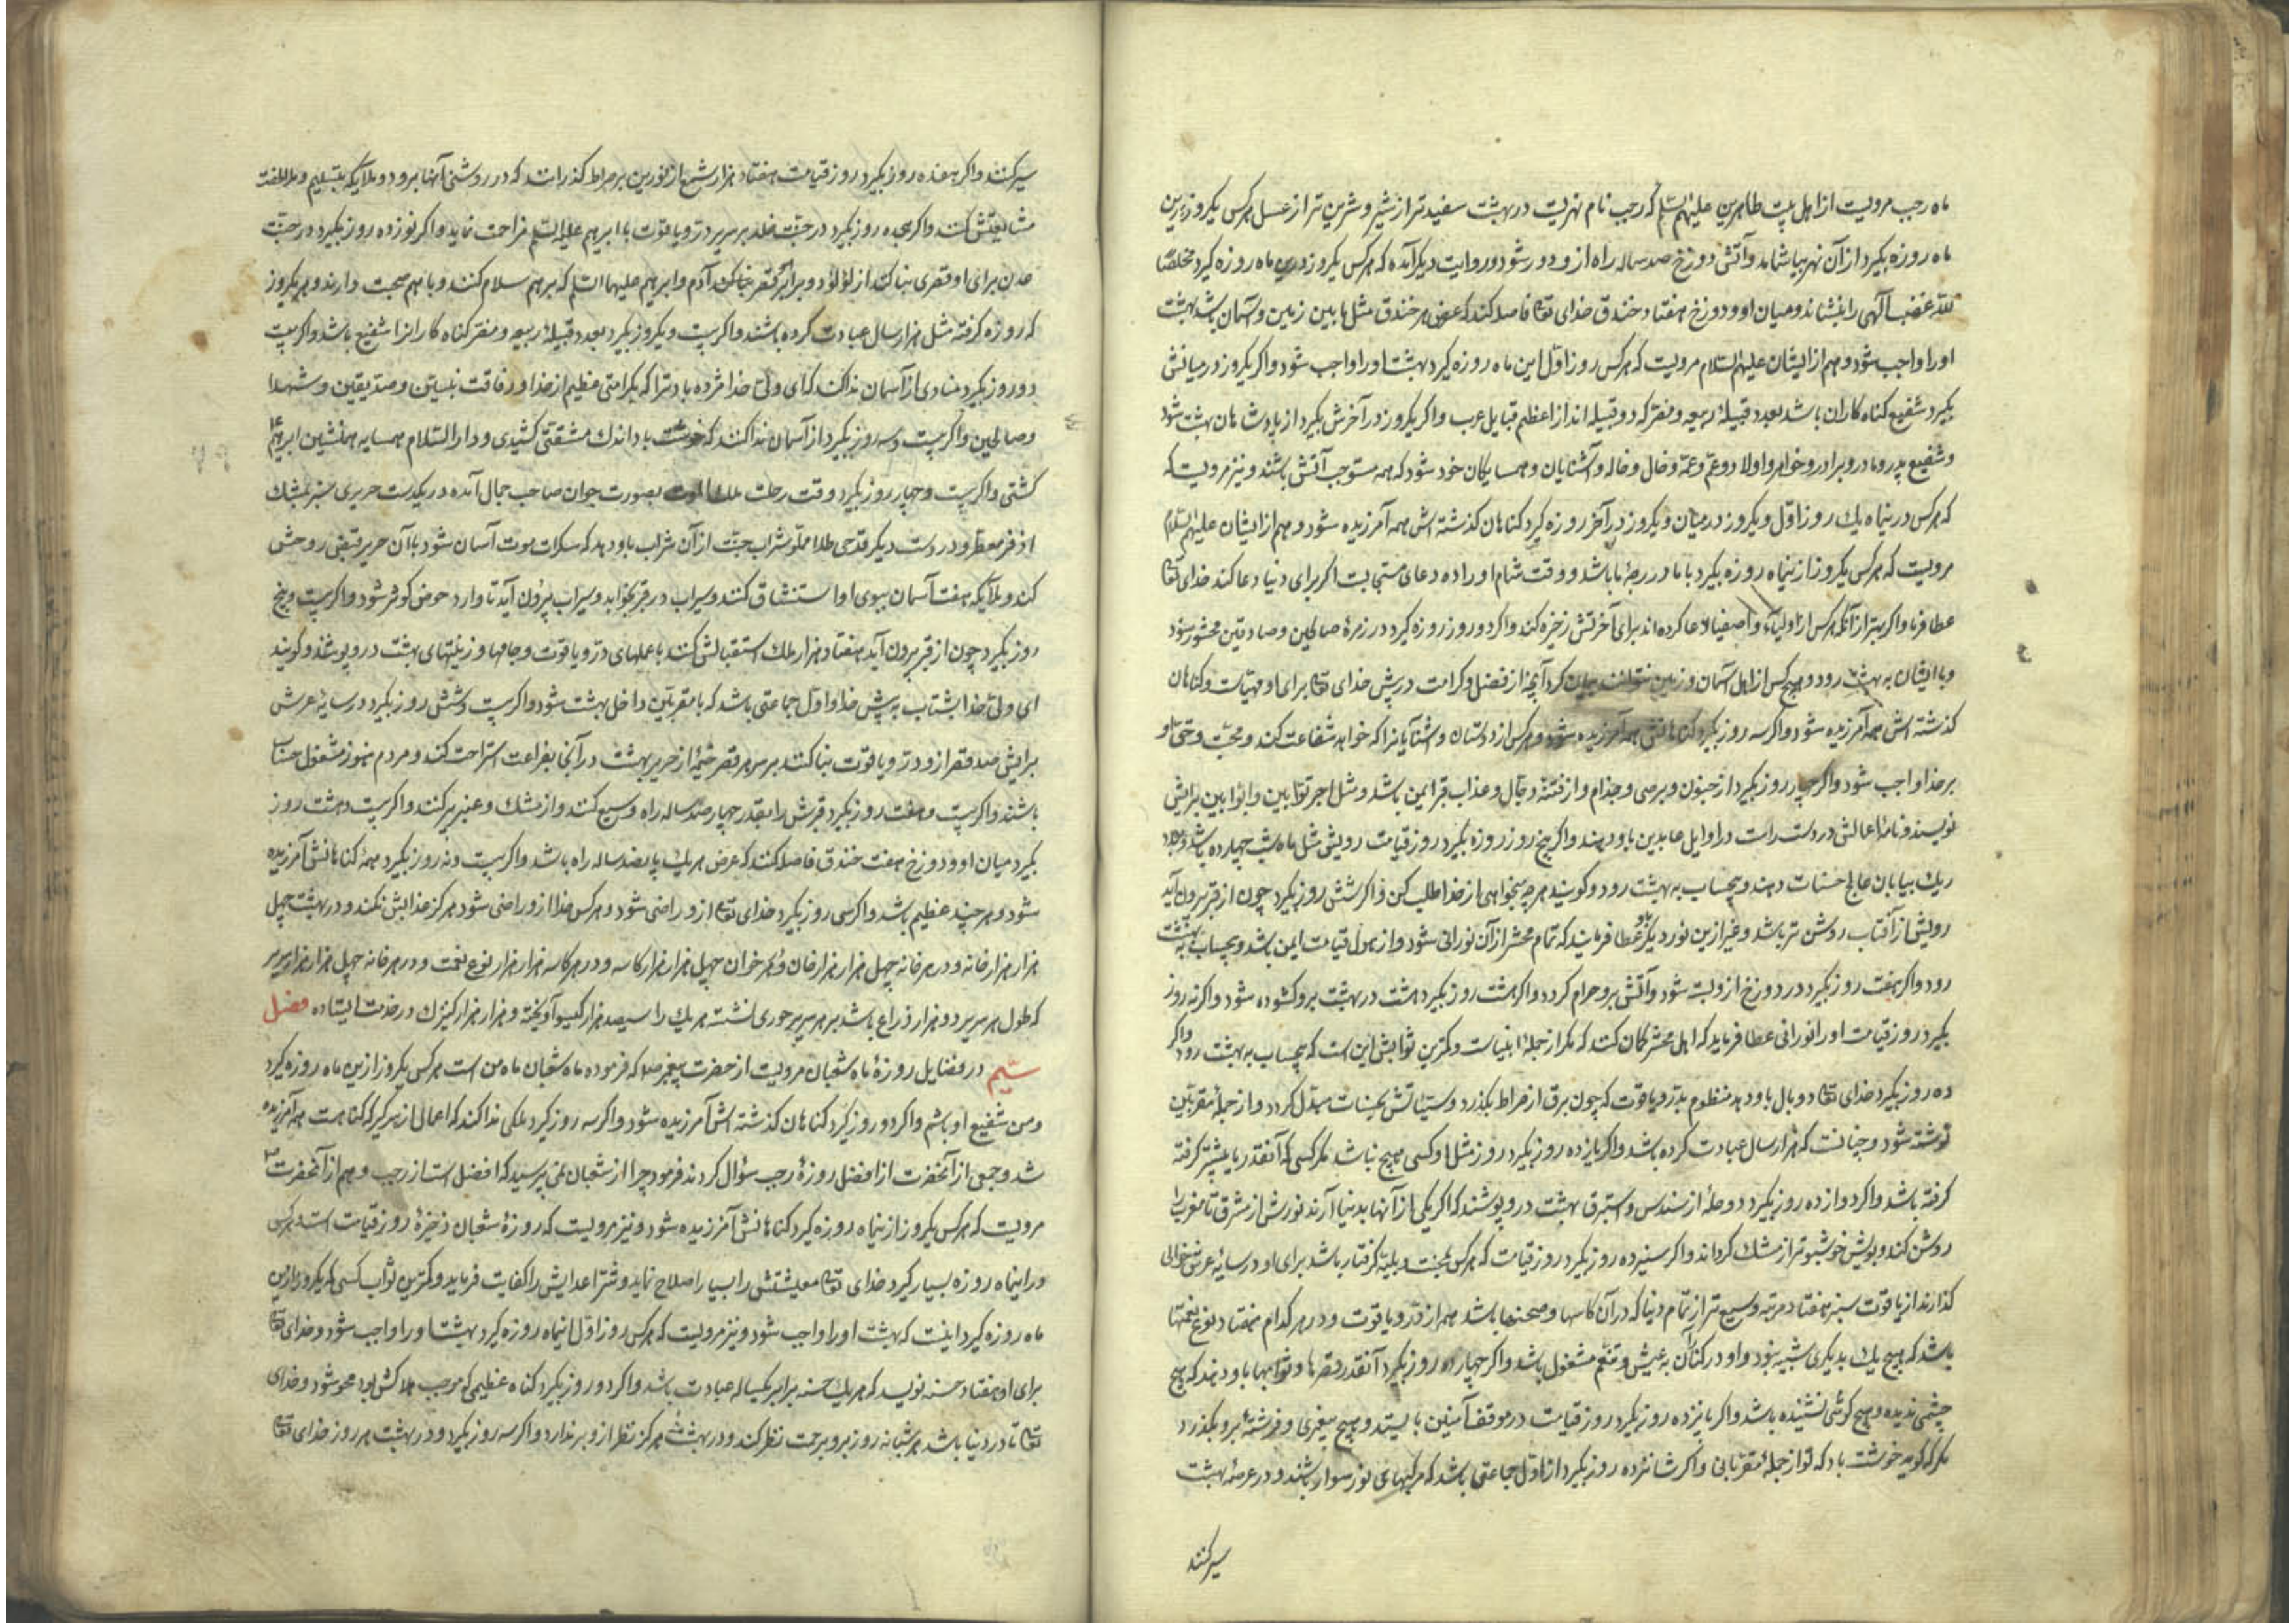 ماه رجب مرویست از اهل بیت طاهرین علیهم السلم که رجب نام نهریست در بهشت سفیدتر از شیر و شرین تر از عسل هرکس یکروز ازین
ماه روزه بگیرد از آن نهر بیاشامد و آتش دوزخ صد ساله راه ازو دور شود و روایت دیگر آمده که هرکس یکروز درین ماه روزه گیرد مخلصًا
لله غضب الهی را بنشاند و میان او و دوزخ هفتاد خندق خدای تعا فاصله کند که عرض هر خندق مثل مابین زمین و آسمان باشد و بهشت
او را واجب شود و هم از ایشان علیهم السلام مرویست که هرکس روز اول این ماه روزه گیرد بهشت او را واجب شود و اگر یکروز در میانش
بگیرد شفیع گناه کاران باشد بعدد قبیلهٔ ربیعه و مضر که دو قبیله اند از اعظم قبایل عرب و اگر یکروز در آخرش بگیرد از پادشاهان بهشت شود
و شفیع پدر و مادر و برادر و خواهر و اولاد و عم و عمه و خال و خاله و آشنایان و همسایگان خود شود که همه مستوجب آتش باشند و نیز مرویست که
که هرکس درینماه یک روز اول و یکروز در میان و یکروز در آخر روزه گیرد گناهان گذشته اش همه آمرزیده شود و هم از ایشان علیهم السلام
مرویست که هرکس یکروز ازینماه روزه بگیرد با ما در درجهٔ ما باشد و وقت شام او را ده دعای مستجابست اگر برای دنیا دعا کند خدای تعا
عطا فرما و اگر بهتر از آنکه هرکس از اولیآء و اصفیا دعا کرده اند برای آخرتش ذخیره کند و اگر دو روز روزه گیرد در زمرهٔ صالحین و صادقین محشور شود
و با ایشان به بهشت رود و هیچکس از اهل آسمان و زمین نتوانند بیان کرد آنچه از فضل و کرامت در پیش خدای تعا برای او مهیاست و گناهان
گذشته اش همه آمرزیده شود و اگر سه روز بگیرد گناهانش همه آمرزیده شود و هرکس از دوستان و آشنایانرا که خواهد شفاعت کند و محبت و حق او
بر خدا واجب شود و اگر چهار روز بگیرد از جنون و برص و جذام و از فتنهٔ دجال و عذاب قبر ایمن باشد و مثل اجر توابین و اوابین برایش
نویسند و نامهٔ اعمالش در دست راست در اوایل عابدین باو دهند و اگر پنج روز روزه بگیرد روز قیامت رویش مثل ماه شب چهارده باشد و بعدد
ریک بیابان عالج حسنات دهند و بیحساب به بهشت رود و گویند هرچه میخواهی از خدا طلب کن و اگر شش روز بگیرد چون از قبر بیرون آید
رویش از آفتاب روشن تر باشد و غیر ازین نور دیگر باو عطا فرمایند که تمام محشر از آن نورانی شود و از هول قیامت ایمن باشد و بیحساب به بهشت
رود و اگر هفت روز بگیرد در دوزخ ازو بسته شود و آتش برو حرام گردد و اگر هشت روز بگیرد هشت در بهشت برو گشوده شود و اگر نه روز
بگیرد روز قیامت او را نورانی عطا فرماید که اهل محشر گمان کنند که مگر از جملهٔ انبیاست و کمترین ثوابش این است که بیحساب به بهشت رود و اگر
ده روز بگیرد خدای تعا دو بال باو دهد منظوم بدر و یاقوت که چون برق از صراط بگذرد و سیئاتش بحسنات مبدل گردد و از جملهٔ مقربین
نوشته شود و چنانست که هزار سال عبادت کرده باشد و اگر یازده روز بگیرد روز مثل او کسی هیچ نباشد مگر کسی که آنقدر یا بیشتر گرفته
گرفته باشد و اگر دوازده روز بگیرد دو حله از سندس و استبرق بهشت درو پوشند که اگر یکی از آنها بدنیا آرند نورش از مشرق تا مغرب را
روشن کند و بویش خوشبوتر از مشک گرداند و اگر سیزده روز بگیرد روز قیامت که هرکس بمحنت و بلیه گرفتار باشد برای او در سایهٔ عرش خوانی
گذارند از یاقوت سبز هفتاد مرتبه وسیع تر از تمام دنیا که در آن کاسها و صحنها باشد همه از در و یاقوت و در هرکدام هفتاد نوع نعمتها
باشد که هیچ یک بدیگری شبیه نبود و او در کنار آن به عیش و تنعم مشغول باشد و اگر چهارده روز بگیرد آنقدر قصرها و ثوابها باو دهند که هیچ
چشمی ندیده و هیچ گوشی نشنیده باشد و اگر پانزده روز بگیرد روز قیامت در موقف آمنین بایستد و هیچ پیغمبری و فرشتهٔ برو بگذرد
مگر که گوید خوشت باد که تو از جملهٔ مقربانی و اگر شانزده روز بگیرد از اول جماعتی باشد که بر مرکبهای نور سوار باشند و در عرصهٔ بهشت
سیر کنند
سیر کنند و اگر هفده روز بگیرد روز قیامت هفتاد هزار شمع از نور بر صراط گذارند که در روشنی آنها برود و ملایکه بتسلیم و ملاطفت
مشایعتش کنند و اگر هجده روز بگیرد در جنت خلد بر سریر در و یاقوت با ابرهیم علیه السلم مزاحمت نماید و اگر نوزده روز بگیرد در جنت
عدن برای او قصری بنا کنند از لؤلؤ و در برابر قصر آدم و ابرهیم علیهما السلم که بر هم سلام کنند و با هم صحبت دارند و بهر یکروز
که روزه گرفته مثل هزار سال عبادت کرده باشند و اگر بیست و یکروز بگیرد بعدد قبیلهٔ ربیعه و مضر گناه کارانرا شفیع باشد و اگر بیست
دو روز بگیرد منادی از آسمان ندا کند که ای ولی خدا مژده باد ترا که بکرامتی عظیم از خدا و رفاقت نبیین و صدیقین و شهدا
و صالحین و اگر بیست و سه روز بگیرد از آسمان ندا کنند که خوشت باد اندک مشقتی کشیدی و دار السلام همسایه همنشین ابرهیم
گشتی و اگر بیست و چهار روز بگیرد وقت رحلت ملک الموت بصورت جوان صاحب جمال آمده در یکدست حریری سبز بمشک
اذفر معطر و در دست دیگر قدحی طلا مملو شراب جنت از آن شراب باو دهد که سکرات موت آسان شود با آن حریر قبض روحش
کند و ملآیکه هفت آسمان ببوی او استنشاق کنند و سیراب در قبر بخوابد و سیراب بیرون آید تا وارد حوض کوثر شود و اگر بیست و پنج
روز بگیرد چون از قبر بیرون آید هفتاد هزار ملک استقبالش کنند با علمهای در و یاقوت و جامها و زینتهای بهشت درو پوشند و گویند
ای ولی خدا بشتاب به پیش خدا و اول جماعتی باشد که با مقربین داخل بهشت شود و اگر بیست و شش روز بگیرد در سایهٔ عرش
برایش صد قصر از در و یاقوت بنا کنند بر سر هر قصر خیمهٔ از حریر بهشت در آنجا بفراغت استراحت کند و مردم هنوز مشغول حساب
باشند و اگر بیست و هفت روز بگیرد قبرش را بقدر چهار صد ساله راه وسیع کنند و از مشک و عنبر پر کنند و اگر بیست و هشت روز
بگیرد میان او و دوزخ هفت خندق فاصله کنند که عرض هر یک پانصد ساله راه باشد و اگر بیست و نه روز بگیرد همهٔ گناهانش آمرزیده
شود و هر چند عظیم باشد و اگر سی روز بگیرد خدای تعا ازو راضی شود و هرکس خدا ازو راضی شود هرگز عذابش نکند و در بهشت چهل
هزار هزار خانه و در هر خانه چهل هزار هزار خان و در هر خوان چهل هزار هزار کاسه و در هر کاسه هزار هزار نوع نعمت و در هر خانه چهل هزار هزار سریر
که طول هر سریر دو هزار ذراع باشد بر هر سریر حوری نشسته هر یک را سیصد هزار گیسو آویخته و هزار هزار کنیزک در خدمت ایستاده فصل
سیّم در فضایل روزهٔ ماه شعبان مرویست از حضرت پیغمبر صلعم که فرموده ماه شعبان ماه من است هرکس یکروز ازین ماه روزه گیرد
و من شفیع او باشم و اگر دو روز گیرد گناهان گذشته اش آمرزیده شود و اگر سه روز گیرد ملکی ندا کند که اعمالی از سر گیر که گناهت همه آمرزیده
شد و جمعی از آنحضرت از افضل روزهٔ رجب سؤال کردند فرمود چرا از شعبان نمی پرسید که افضل است از رجب و هم از آنحضرت ص
مرویست که هرکس یکروز ازینماه روزه گیرد گناهانش آمرزیده شود و نیز مرویست که روزهٔ شعبان ذخیرهٔ روز قیامت است هرکس
در اینماه روزه بسیار گیرد خدای تعا معیشتش را بسیار اصلاح نماید و شر اعدایش را کفایت فرماید و کمترین ثواب کسی که یکروز ازین
ماه روزه گیرد اینست که بهشت او را واجب شود و نیز مرویست که هرکس روز اول اینماه روزه گیرد بهشت او را واجب شود و خدای تعا
برای او هفتاد حسنه نویسد که هر یک حسنه برابر یکساله عبادت باشد و اگر دو روز بگیرد گناه عظیمی که موجب هلاکش بود محو شود و خدای
تعا تا در دنیا باشد هر شبانه روز برو برحمت نظر کند و در بهشت هرگز نظر ازو برندارد و اگر سه روز بگیرد و در بهشت هر روز خدای تعا